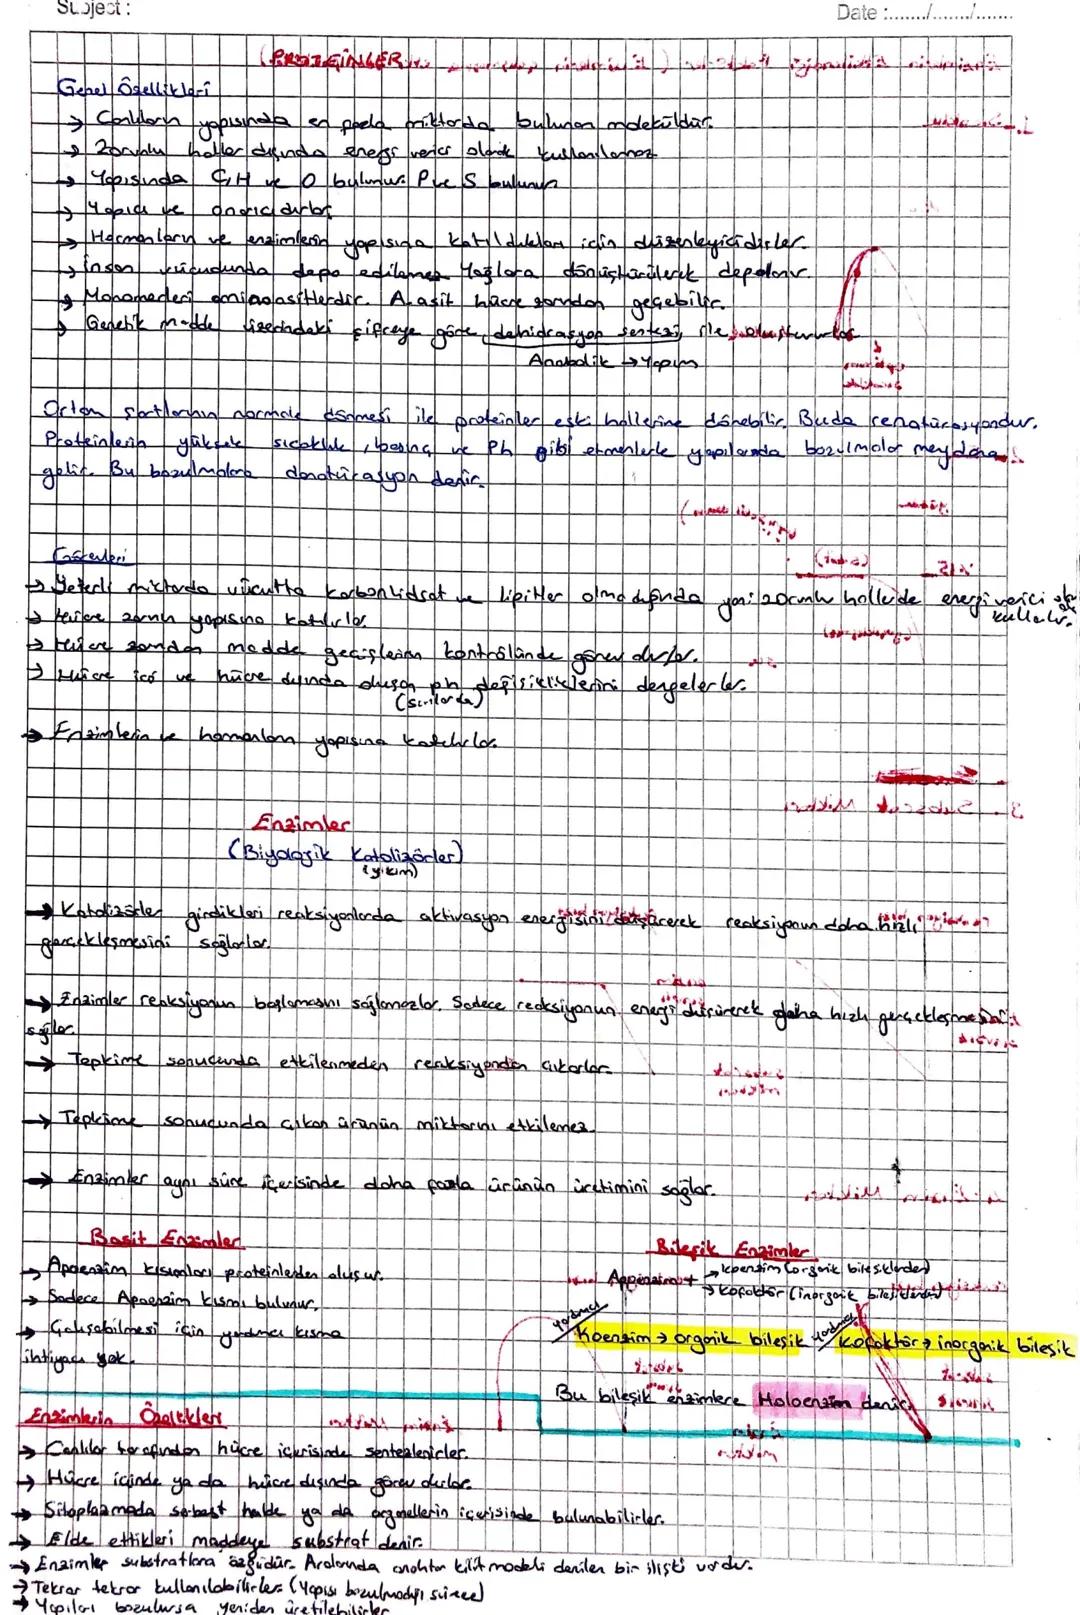 Subject :
Date :......./......./.......
(PROTEİNLER
Genel Özellikleri
→ Canlıların yapısında en fazla miktarda bulunan moleküldür.
→ Zorunlu haller dışında enerji verici olarak kullanılamaz
→ Yapısında C,H ve O bulunur. P ve S bulunur
→ Yapıcı ve onarıcıdırlar
→ Hormonların ve enzimlerin yapısına katıldıkları için düzenleyicidirler.
→ İnsan vücudunda depo edilemez Yağlara dönüştürülerek depolanır
→ Monomerleri aminoasitlerdir. A.asit hücre zarından geçebilir.
→ Genetik madde üzerindeki şifreye göre dehidrasyon sentezi ile oluştururlar
Anabolik → Yapım
Ortan şartlarının normale dönmesi ile proteinler eski hallerine dönebilir. Buda renatürasyondur.
Proteinlerin yüksek sıcaklık, basınç ve Ph gibi etmenlerle yapılarında bozulmalar meydana
gelir. Bu bozulmalara denatürasyon denir.
Görevleri
→ Yeterli miktarda vücutta karbonhidrat ve lipitler olmadığında yani zorunlu hallerde enerji verici olarak
kullanılır.
→ Hücre zarının yapısına katılırlar
→ Hücre zarından madde geçişlerinin kontrolünde görev alırlar.
→ Hücre içi ve hücre dışında oluşan ph değişikliklerini dengelerler.
(sıvılarda)
→ Enzimlerin ve hormonların yapısına katılırlar.
Enzimler
(Biyolojik Katalizörler)
(yıkım)
→ Katalizörler girdikleri reaksiyonlarda aktivasyon enerjisini düşürerek reaksiyonun daha hızlı
gerçekleşmesini sağlarlar.
→ Enzimler reaksiyonun başlamasını sağlamazlar. Sadece reaksiyonun enerji düşürerek daha hızlı gerçekleşmesini
sağlar
→ Tepkime sonucunda etkilenmeden reaksiyondan çıkarlar.
→ Tepkime sonucunda çıkan ürünün miktarını etkilemez.
→ Enzimler aynı süre içerisinde daha fazla ürünün üretimini sağlar.
Basit Enzimler
→ Apoenzim kısımları proteinlerden oluşur.
→ Sadece Apoenzim kısmı bulunur.
→ Çalışabilmesi için yardımcı kısma
ihtiyacı yok.
Bileşik Enzimler
Appenzim + → koenzim (organik bileşiklerden)
→ kofaktör (inorganik bileşiklerden)
yardımcı Koenzim → organik bileşik yardımcı Kofaktör → inorganik bileşik
Bu bileşik enzimlere Holoenzim denir.
Enzimlerin Özellikleri
→ Canlılar tarafından hücre içerisinde sentezlenirler.
→ Hücre içinde ya da hücre dışında görev alırlar.
→ Sitoplazmada serbest halde ya da organellerin içerisinde bulunabilirler.
→ Elde ettikleri maddeye substrat denir.
→ Enzimler substratlara özgüdür. Aralarında anahtar kilit modeli denilen bir ilişki vardır.
→ Tekrar tekrar kullanılabilirler. (Yapısı bozulmadığı sürece)
→ Yapıları bozulursa yeniden üretilebilirler